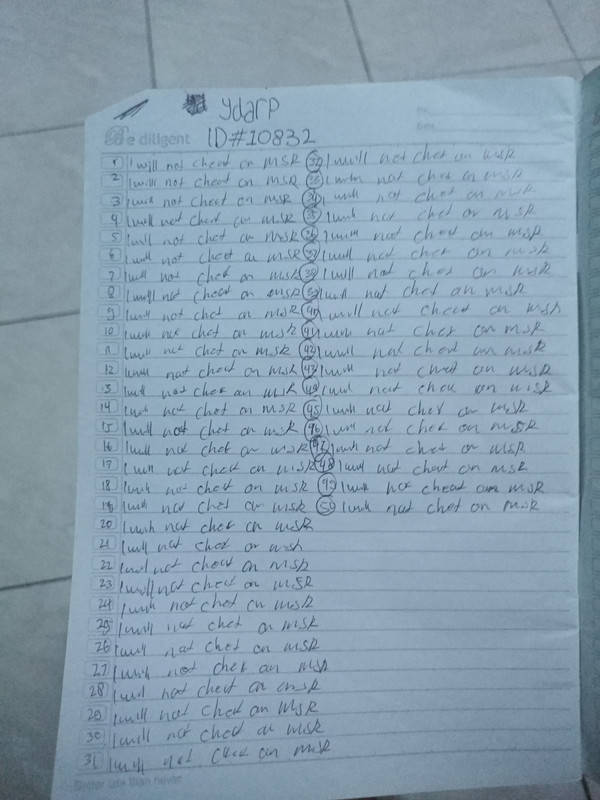 ydarp
Be diligent
ID#10832
1 I will not cheat on MSR
2 I will not cheat on MSR
3 I will not cheat on MSR
4 I will not cheat on MSR
5 I will not chet on MSR
6 I will not chet on MSR
7 I will not chet on MSR
8 I will not cheat on MSR
9 I will not chet on MSR
10 I will not chet on MSR
11 I will not chet on MSR
12 I will not cheat on MSR
13 I will not chet on MSR
14 I will not chet on MSR
15 I will not chet on MSR
16 I will not chet on MSR
17 I will not cheat on MSR
18 I will not chet on MSR
19 I will not chet on MSR
20 I will not chet on MSR
21 I will not chet on MSR
22 I will not cheat on MSR
23 I will not cheat on MSR
24 I will not chet on MSR
25 I will not chet on MSR
26 I will not chet on MSR
27 I will not chet on MSR
28 I will not cheat on MSR
29 I will not chet on MSR
30 I will not chet on MSR
31 I will not chet on MSR
32 I will not chet on MSR
33 I will not chet on MSR
34 I will not chet on MSR
35 I will not chet on MSR
36 I will not cheat on MSR
37 I will not chet on MSR
38 I will not chet on MSR
39 I will not chet on MSR
40 I will not cheat on MSR
41 I will not chet on MSR
42 I will not cheat on MSR
43 I will not cheat on MSR
44 I will not chet on MSR
45 I will not chet on MSR
46 I will not chet on MSR
47 I will not chet on MSR
48 I will not cheat on MSR
49 I will not cheat on MSR
50 I will not chet on MSR
Better late than never